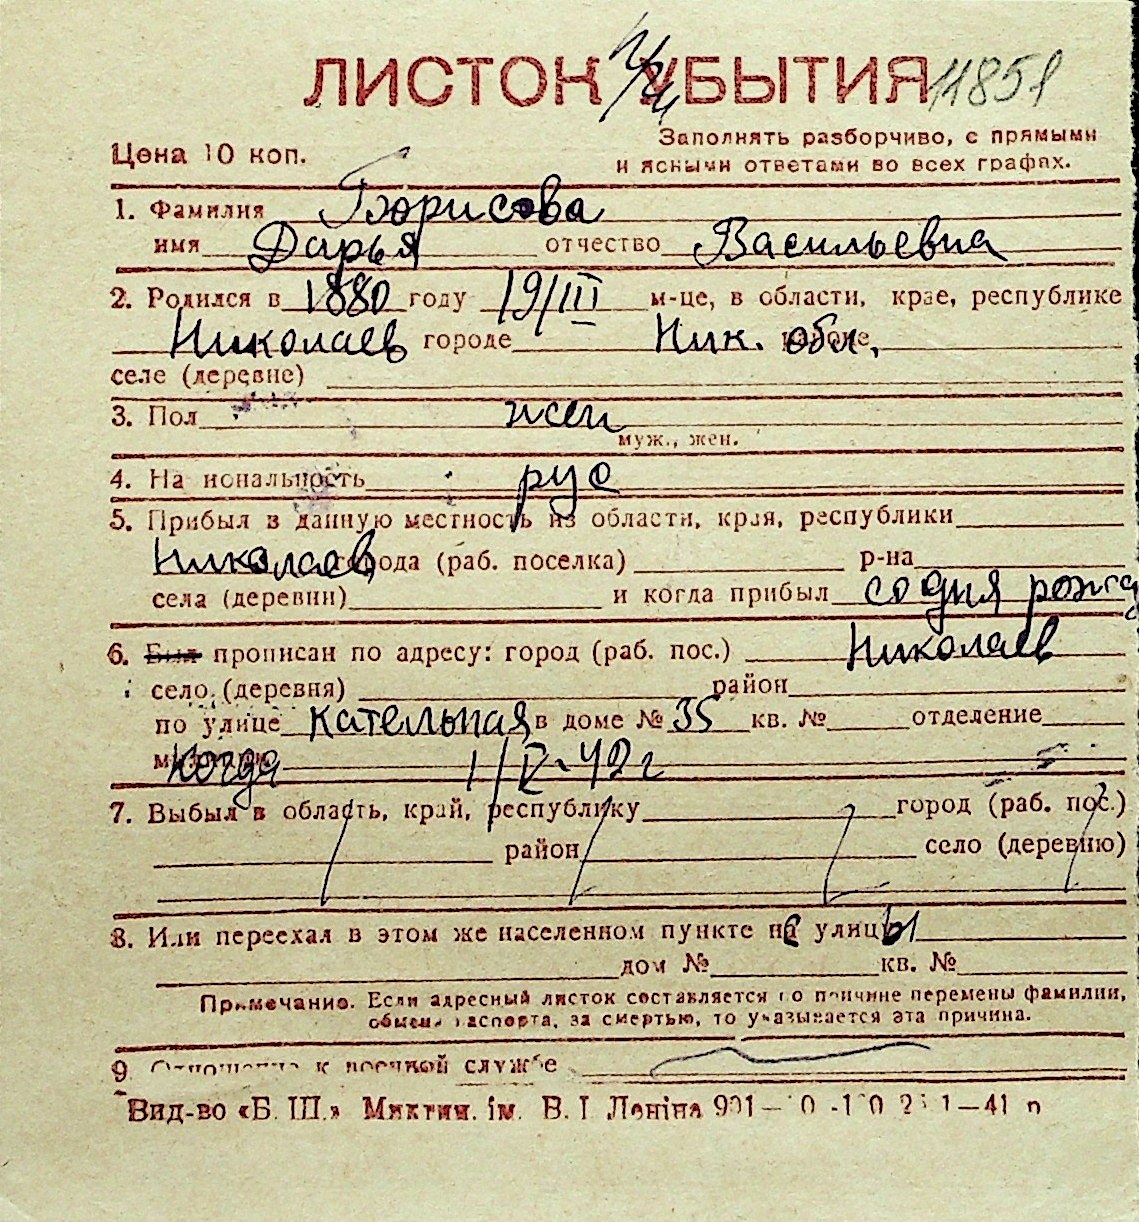 ЛИСТОК УБЫТИЯ 11851
Цена 10 коп.
Заполнять разборчиво, с прямыми
и ясными ответами во всех графах.
1. Фамилия Борисова
имя Дарья отчество Васильевна
2. Родился в 1880 году 19/III м-це, в области, крае, республике
Николаев городе Ник. обл.
селе (деревне)
3. Пол жен
муж., жен.
4. Национальность рус
5. Прибыл в данную местность из области, края, республики
Николаев города (раб. поселка) р-на
села (деревни) и когда прибыл со дня рожд
6. Был прописан по адресу: город (раб. пос.) Николаев
село (деревня) район
по улице Кательная в доме № 35 кв. № отделение
Когда 1/IV-42 г
7. Выбыл в область, край, республику город (раб. пос.)
район село (деревню)
8. Или переехал в этом же населенном пункте не улицы
дом № кв. №
Примечание. Если адресный листок составляется по причине перемены фамилии,
обмена паспорта, за смертью, то указывается эта причина.
9 Отношение к военной службе
Вид-во «Б. Ш.» Миктип. ім. В. І Леніна